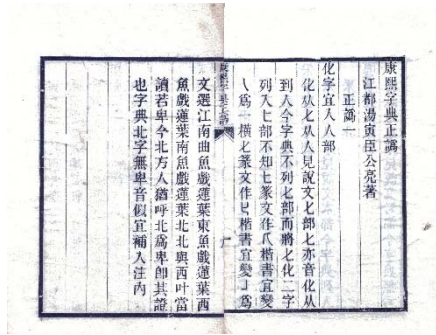 康熙字典正譌
江都湯寅臣公亮著
正譌一
化字宜入人部
化从匕从人見說文匕部匕亦音化从
到人今字典不列匕部而將匕化二字
列入匕部不知匕篆文作 楷書宜變
爲一橫匕篆文作 楷書宜變 爲
文選江南曲魚戲蓮葉東魚戲蓮葉西
魚戲蓮葉南魚戲蓮葉北北與西叶當
讀若卑今北方人猶呼北爲卑卽其證
也字典北字無卑音似宜補入注內